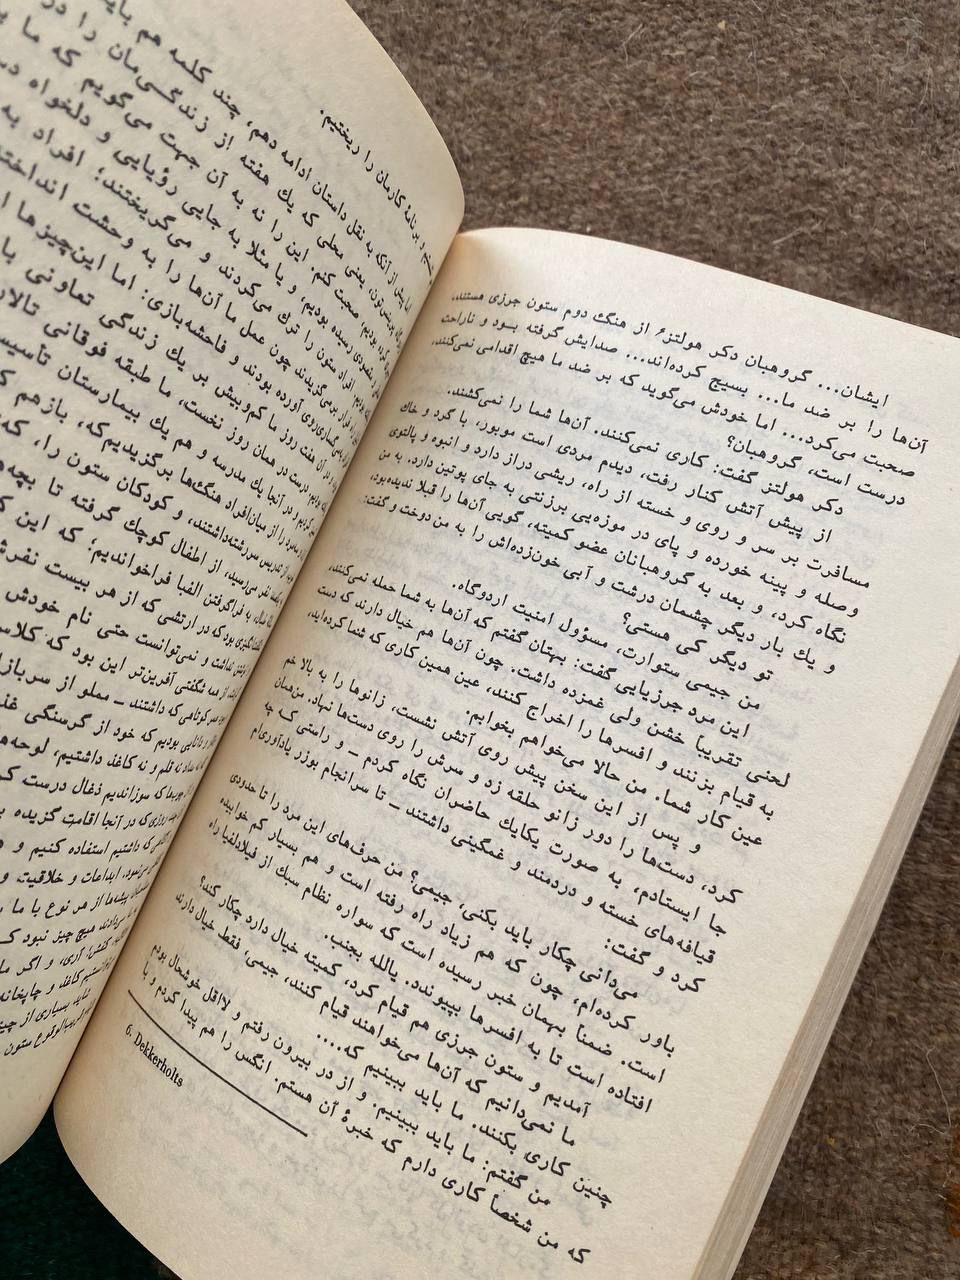 ایشان... گروهبان دکر هولتز۶ از هنگ دوم ستون جرزی هستند.
آن‌ها را بر ضد ما... بسیج کرده‌اند... صدایش گرفته بود و ناراحت
صحبت می‌کرد... اما خودش می‌گوید که بر ضد ما هیچ اقدامی نمی‌کنند.
درست است، گروهبان؟
دکر هولتز گفت: کاری نمی‌کنند. آن‌ها شما را نمی‌کشند.
از پیش آتش کنار رفت، دیدم مردی است موبور، با گرد و خاك
مسافرت بر سر و روی و خسته از راه، ریشی دراز دارد و انبوه و پالتوی
وصله و پینه خورده و پای در موزه‌یی برزنتی به جای پوتین دارد. به من
نگاه کرد، و بعد به گروهبانان عضو کمیته، گویی آن‌ها را قبلا ندیده‌بود،
و یك بار دیگر چشمان درشت و آبی خون‌زده‌اش را به من دوخت و گفت:
تو دیگر کی هستی؟
من جیمی ستوارت، مسؤول امنیت اردوگاه.
این مرد جرزیایی گفت: بهتان گفتم که آن‌ها به شما حمله نمی‌کنند،
لحنی تقریباً خشن ولی غمزده داشت. چون آن‌ها هم خیال دارند که دست
به قیام بزنند و افسرها را اخراج کنند، عین همین کاری که شما کرده‌اید،
عین کار شما. من حالا می‌خواهم بخوابم.
و پس از این سخن پیش روی آتش نشست، زانوها را به بالا خم
کرد، دست‌ها را دور زانو حلقه زد و سرش را روی دست‌ها نهاد. من‌همان
جا ایستادم، به صورت یکایك حاضران نگاه کردم ـ و راستی کـه چه
قیافه‌های خسته و دردمند و غمگینی داشتند ـ تا سرانجام بوزر یادآوری‌ام
کرد و گفت:
می‌دانی چکار باید بکنی، جیمی؟ من حرف‌های این مرد را تا حدودی
باور کرده‌ام، چون که هم زیاد راه رفته است و هم بسیار کم خوابیده
است. ضمناً بهمان خبر رسیده است که سواره نظام سبك از فیلادلفیا راه
افتاده است تا به افسرها بپیوندد. یالله بجنب.
آمدیم و ستون جرزی هم قیام کرد، کمیته خیال دارد چکار کند؟
ما نمی‌دانیم که آن‌ها می‌خواهند قیام کنند، جیمی، فقط خیال دارند
چنین کاری بکنند. ما باید ببینیم که....
من گفتم: ما باید ببینیم. و از در بیرون رفتم و لااقل خوشحال بودم
که من شخصاً کاری دارم که خبرهٔ آن هستم. انگس را هم پیدا کردم و با
6. Dekkerholts
و برنامهٔ کارمان را ریختیم.
اما پیش از آنکه به نقل داستان ادامه دهم، چند کلمه هم باید
یعنی محلی که یك هفته از زندگـی‌مان را در
صحبت کنم. این را نه به آن جهت می‌گویم که ما
رسیده بودیم، و یا مثلا به جایی رؤیایی و دلخواه
افراد ستون را ترك می‌کردند و می‌گریختند؛ افراد به
چون عمل ما آن‌ها را به وحشت انداخته
آورده بودند و فاحشه‌بازی: اما این‌چیزها
هفت روز ما کم‌وبیش بر یك زندگی تعاونی
درست در همان روز نخست، ما طبقه فوقانی تالار
و در آنجا یك مدرسه و هم یك بیمارستان تأسیس
را از میان‌افراد هنگ‌ها برگزیدیم‌که، بازهم
تدریس سررشته‌داشتند، و کودکان ستون را، که
نفر می‌رسید، از اطفال کوچك گرفته تا بچه‌های
به فراگرفتن الفبا فراخواندیم؛ که این
بود که در ارتشی که از هر بیست نفرش
نداشت و نمی‌توانست حتی نام خودش
از همه شگفتی آفرین‌تر این بود که کلاس
که داشتند ـ مملو از سربازان
بودیم که خود از گرسنگی
نه قلم و نه کاغذ داشتیم، لوحه‌ها
که سوزاندیم ذغال درست
روزی که در آنجا اقامت گزیده
که داشتیم استفاده کنیم و
ابداعات و خلاقیت و
از هر نوع با ما
هیچ چیز نبود
آری، و اگر ما
کاغذ و چاپخانه
شاید بسیاری از
ستون